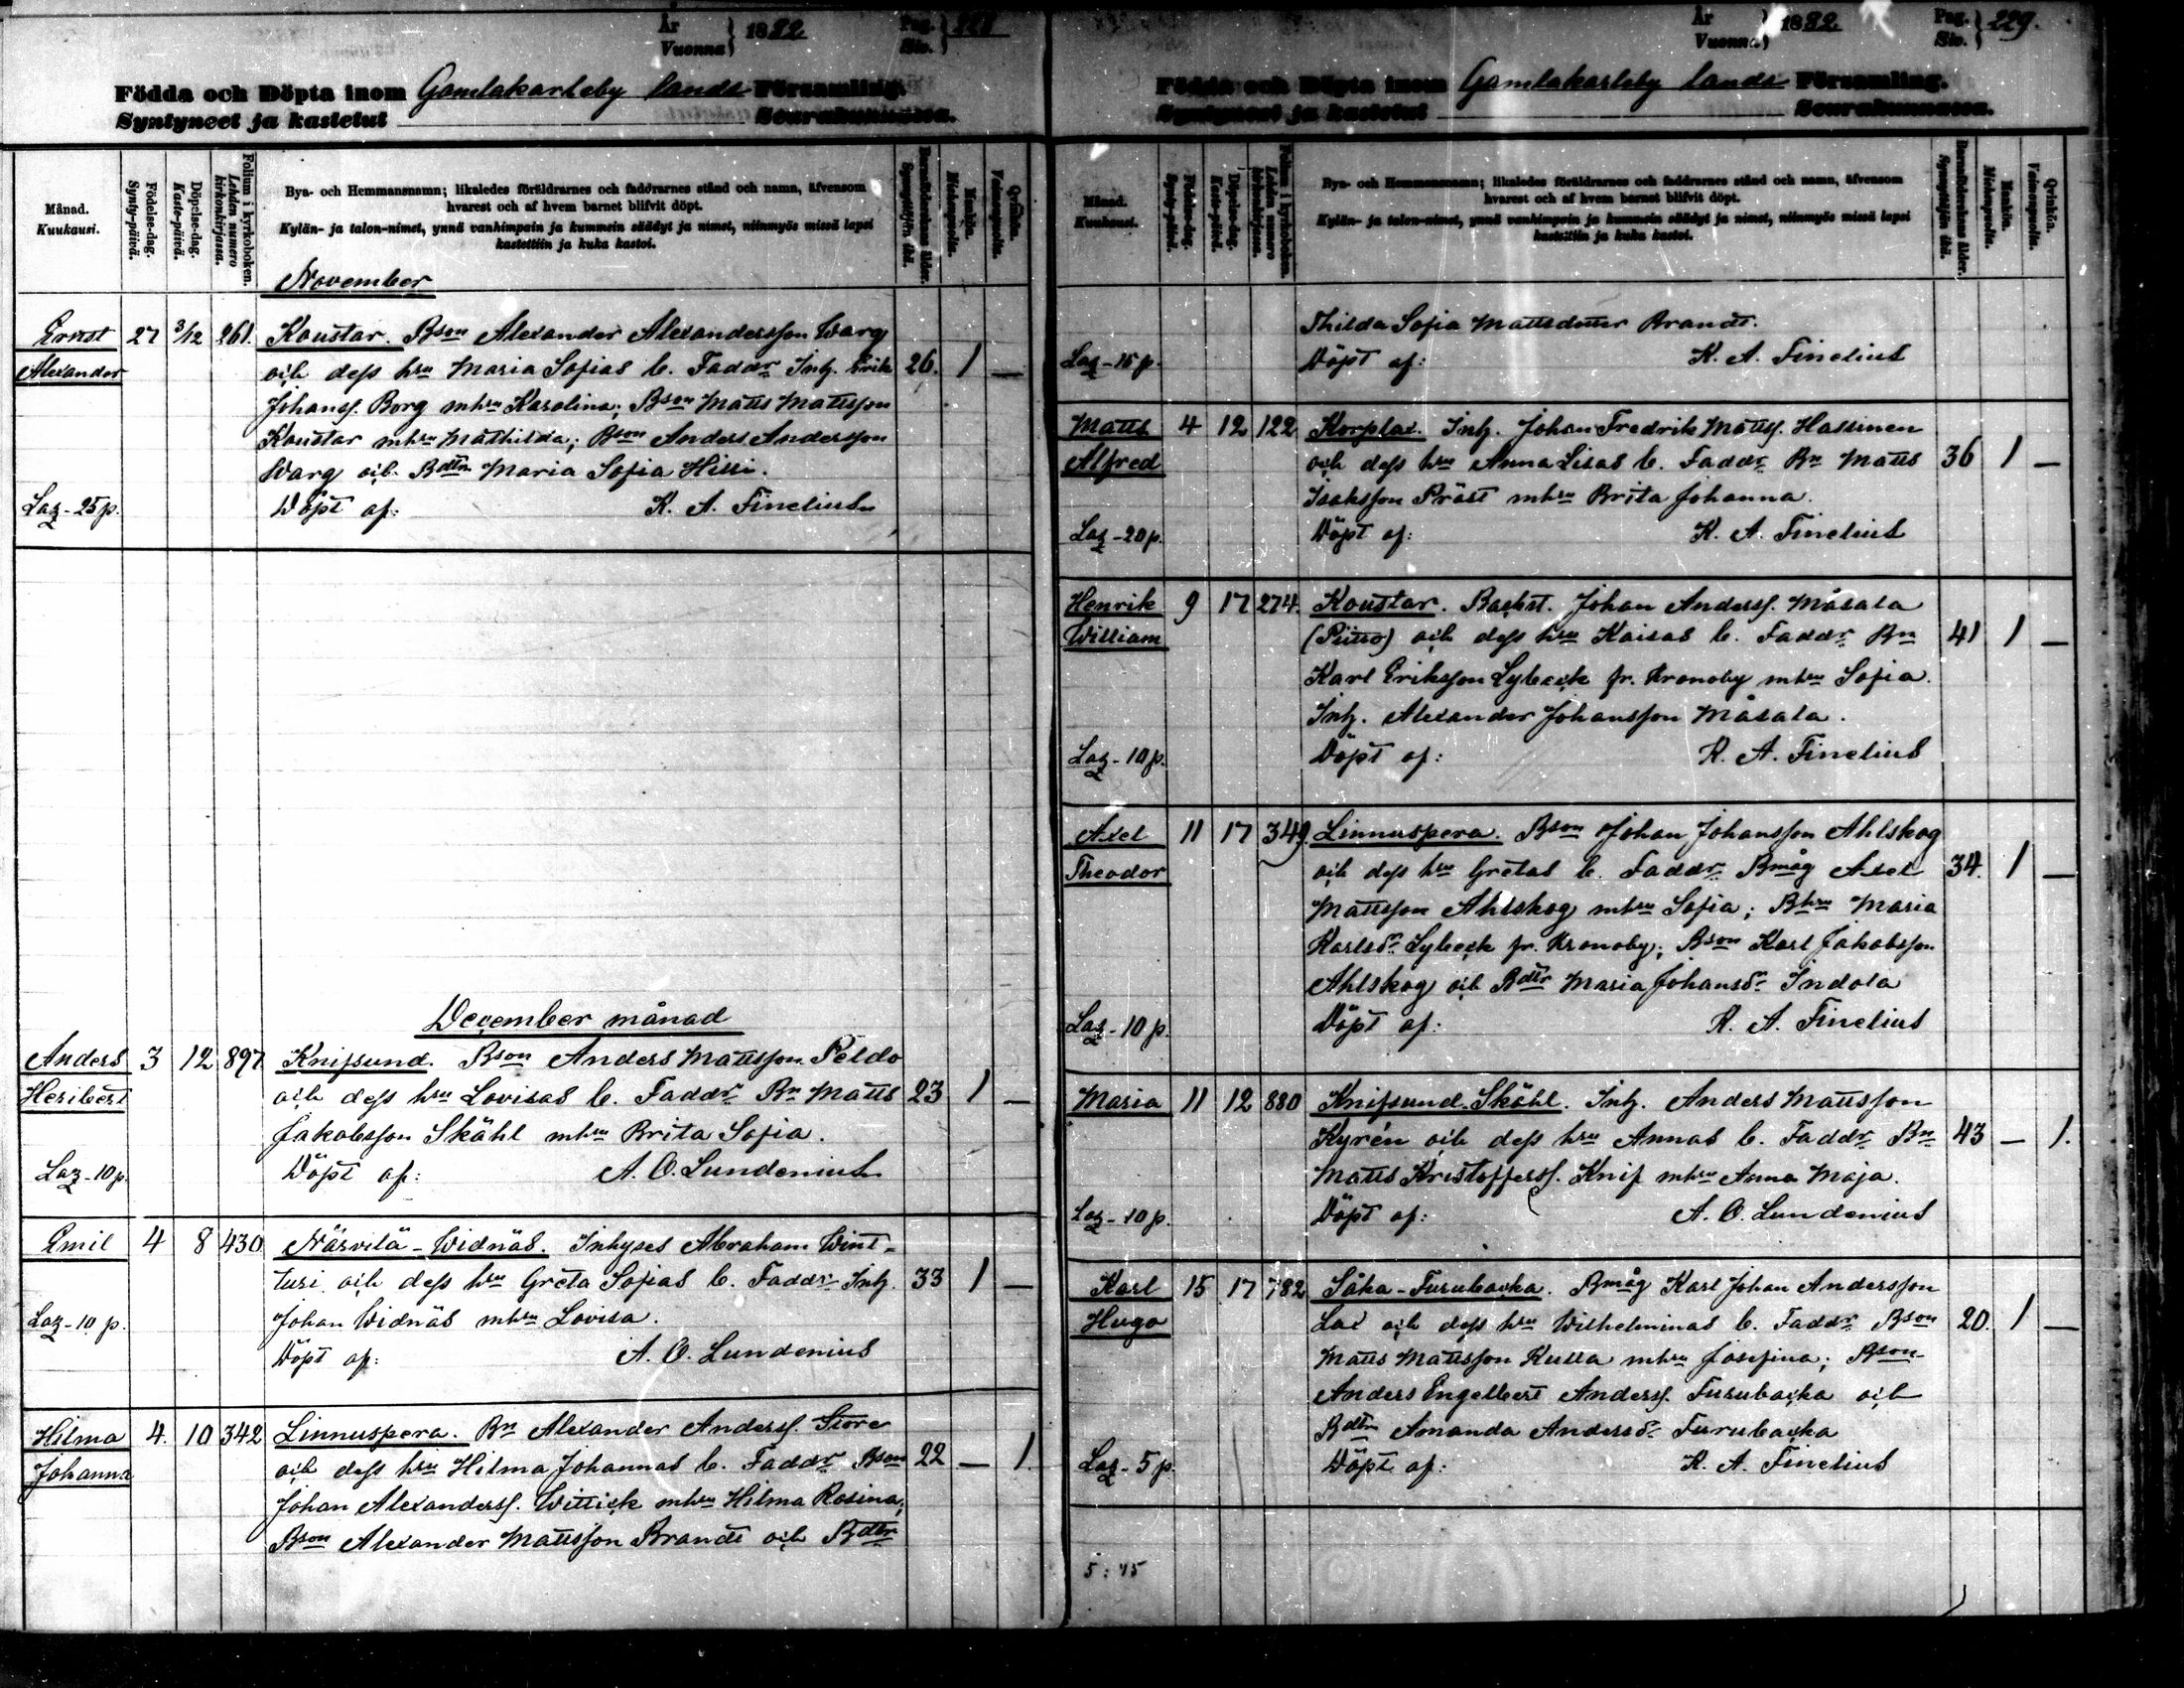 År
Vuonna } 1882
Pag.
Siv. } 228
Födda och Döpta inom Gamlakarleby lands Församling.
Syntyneet ja kastetut Seurakunnassa.
Månad.
Kuukausi.
Födelse-dag.
Synty-päivä.
Döpelse-dag.
Kaste-päivä.
Folium i kyrkoboken.
Lehden numero kirkonkirjassa.
Bya- och Hemmansnamn; likaledes föräldrarnes och faddrarnes stånd och namn, äfvensom
hvarest och af hvem barnet blifvit döpt.
Kylän- ja talon-nimet, ynnä vanhimpain ja kummein säädyt ja nimet, niinmyös missä lapsi
kastettiin ja kuka kastoi.
Barnaföderskans ålder.
Synnyttäjän ikä.
Mankön.
Miehenpuolia.
Qvinkön.
Vaimonpuolia.
November
Ernst 27 3/12 261. Koustar. Bson Alexander Alexandersson Warg
Alexander och dess hru Maria Sofias b. Faddr Inh. Erik 26. 1 —
Johanss. Borg mhru Karolina; Bson Matts Mattsson
Koustar mhru Mathilda; Bson Anders Andersson
Warg och Bdtr Maria Sofia Hissi.
Laz - 25 p. Döpt af: K. A. Finelius
December månad
Anders 3 12 897 Knifsund. Bson Anders Mattsson Peldo
Heribert och dess hru Lovisas b. Faddr Bn Matts 23 1 —
Jakobsson Skåhl mhru Brita Sofia.
Laz - 10 p. Döpt af: A. O. Lundenius
Emil 4 8 430 Närvilä - Widnäs. Inhyses Abraham Wint-
turi och dess hru Greta Sofias b. Faddr Inh. 33 1 —
Laz - 10 p. Johan Widnäs mhru Lovisa.
Döpt af: A. O. Lundenius
Hilma 4. 10 342 Linnuspera. Bn Alexander Anderss. Store
Johanna och dess hru Hilma Johannas b. Faddr Bson 22 — 1.
Johan Alexanderss. Wittick mhru Hilma Rosina,
Bson Alexander Mattsson Brandt och Bdtr
År
Vuonna } 1882
Pag.
Siv. } 229.
Födda och Döpta inom Gamlakarleby lands Församling.
Syntyneet ja kastetut Seurakunnassa.
Månad.
Kuukausi.
Födelse-dag.
Synty-päivä.
Döpelse-dag.
Kaste-päivä.
Folium i kyrkoboken.
Lehden numero kirkonkirjassa.
Bya- och Hemmansnamn; likaledes föräldrarnes och faddrarnes stånd och namn, äfvensom
hvarest och af hvem barnet blifvit döpt.
Kylän- ja talon-nimet, ynnä vanhimpain ja kummein säädyt ja nimet, niinmyös missä lapsi
kastettiin ja kuka kastoi.
Barnaföderskans ålder.
Synnyttäjän ikä.
Mankön.
Miehenpuolia.
Qvinkön.
Vaimonpuolia.
Thilda Sofia Mattsdotter Brandt.
Laz - 15 p. Döpt af: K. A. Finelius
Matts 4 12 122 Korplax. Inh. Johan Fredrik Mattss. Hassinen
Alfred och dess hru Anna Lisas b. Faddr Bn Matts 36 1 —
Isaksson Präst mhru Brita Johanna.
Laz - 20 p. Döpt af: K. A. Finelius
Henrik 9 17 274. Koustar. Backst. Johan Anderss. Måsala
William och dess hru Kaisas b. Faddr Bn 41 1 —
Karl Eriksson Lybeck fr. Kronoby mhru Sofia.
Inh. Alexander Johansson Måsala.
Laz - 10 p. Döpt af: K. A. Finelius
Axel 11 17 349. Linnuspera. Bson Johan Johansson Ahlskog
Theodor och dess hru Gretas b. Faddr Bmåg Axel 34. 1 —
Mattsson Ahlskog mhru Sofia; Bhru Maria
Karlsdr Lybeck fr. Kronoby; Bson Karl Jakobsson
Ahlskog och Bdtr Maria Johansdr Indola
Laz - 10 p. Döpt af: K. A. Finelius
Maria 11 12 880 Knifsund. Skåhl. Inh. Anders Mattsson
Kyrén och dess hru Annas b. Faddr Bn 43 — 1.
Matts Kristofferss. Knif mhru Anna Maja.
Laz - 10 p. Döpt af: A. O. Lundenius
Karl 15 17 782 Såka - Furubacka. Bmåg Karl Johan Andersson
Hugo Lax och dess hru Wilhelminas b. Faddr Bson 20. 1 —
Matts Mattsson Kulla mhru Josefina; Bson
Anders Engelbert Anderss. Furubacka och
Bdtr Amanda Andersdr Furubacka
Laz - 5 p. Döpt af: K. A. Finelius
5:45